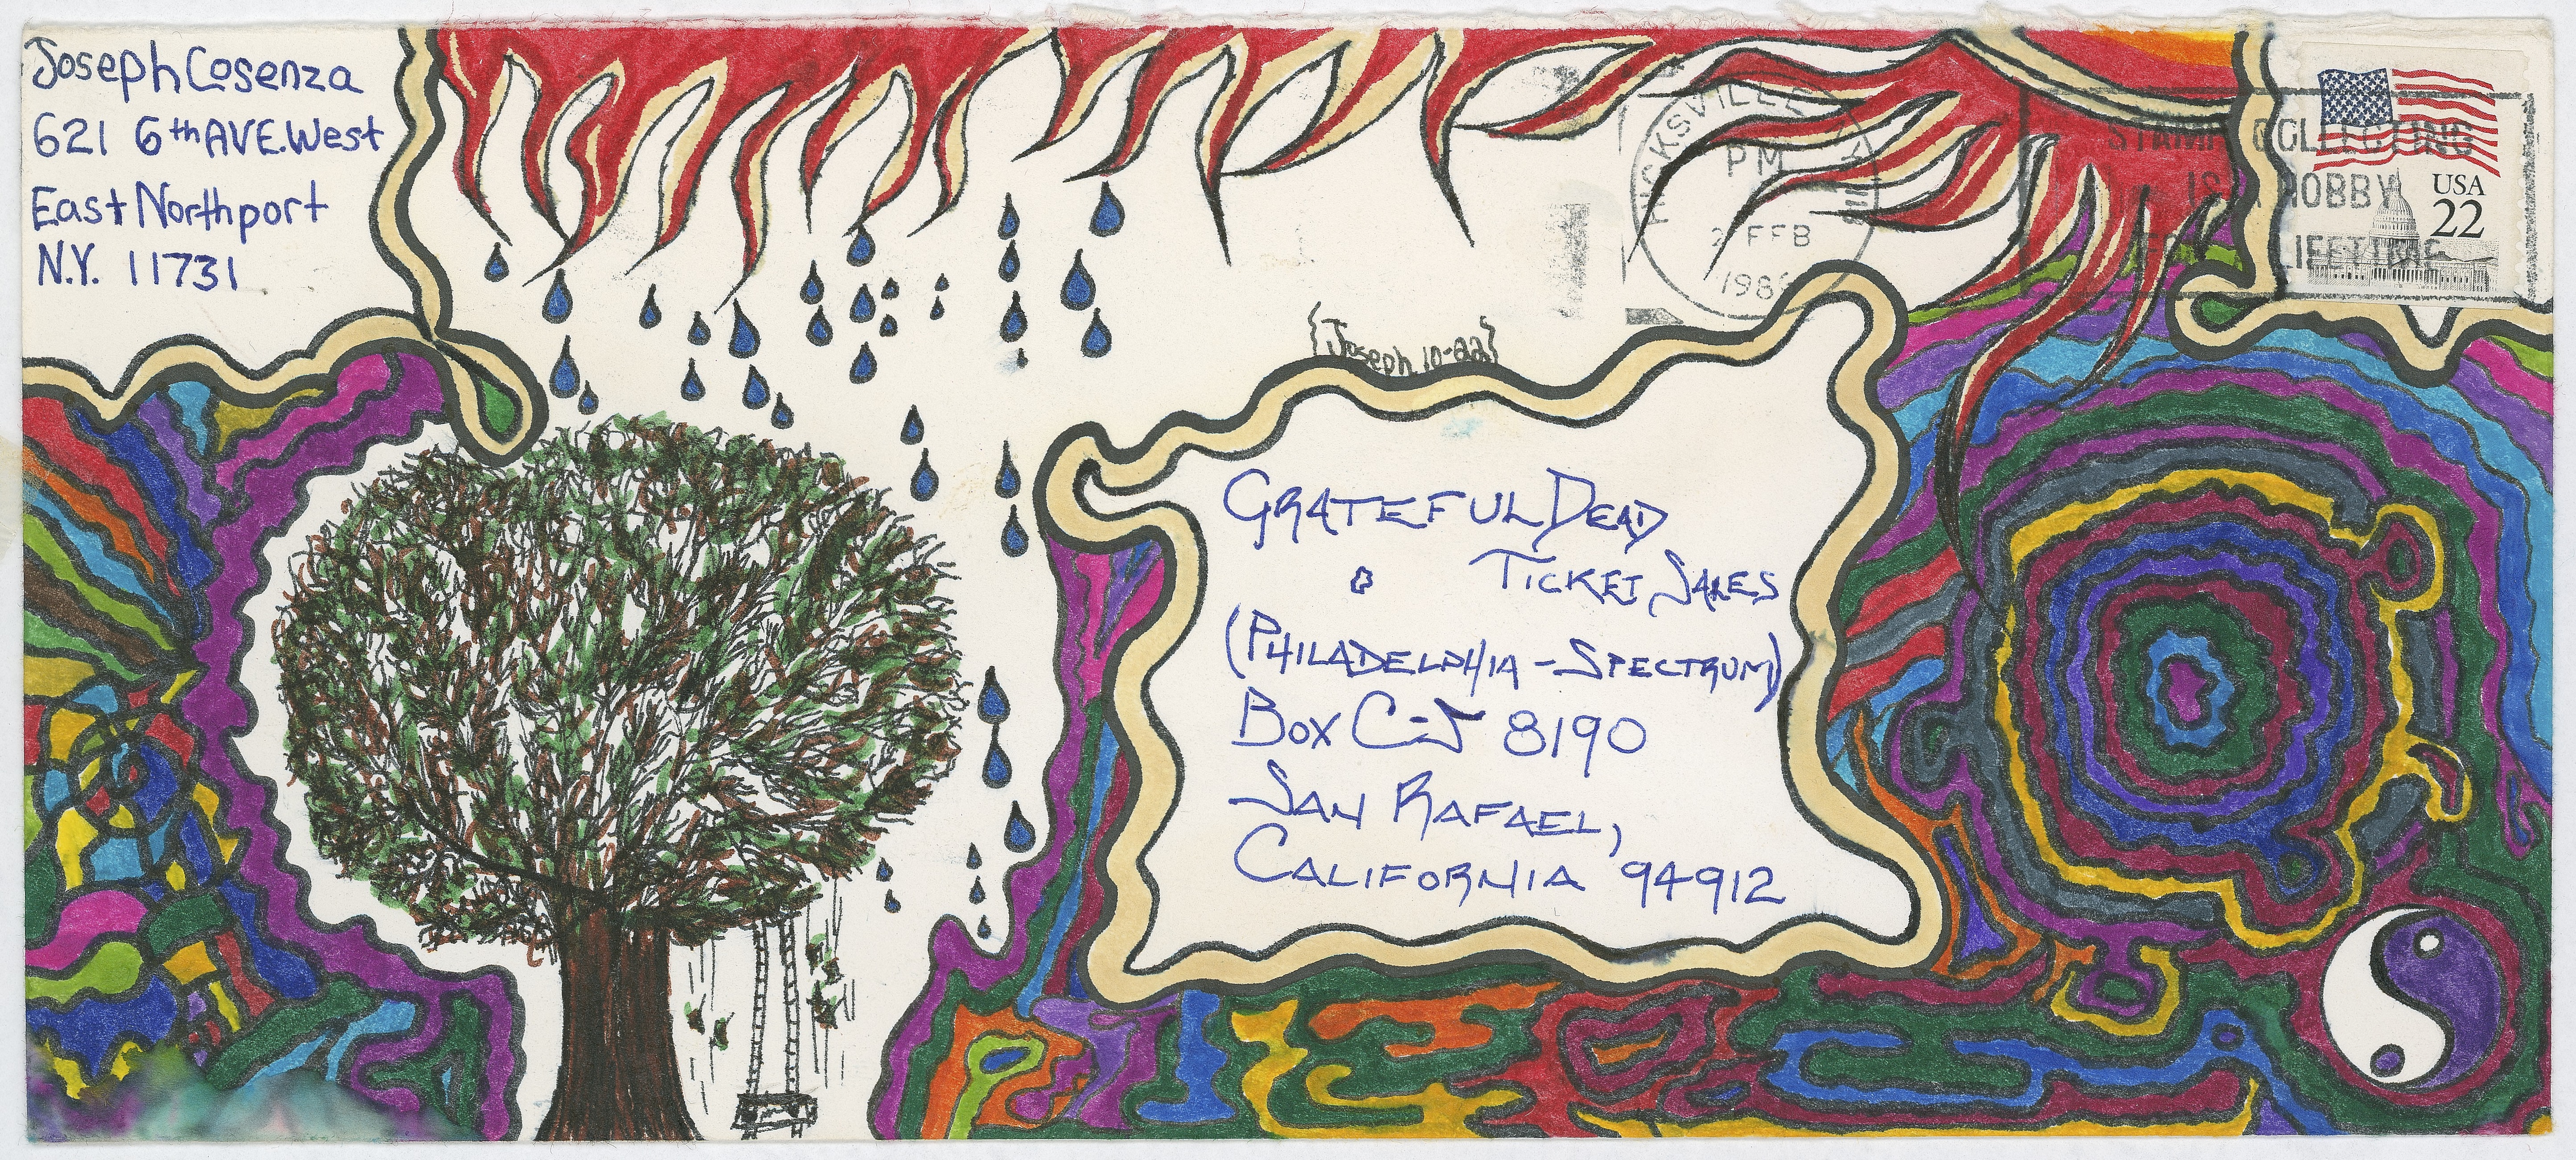 Joseph Cosenza
621 6th AVE. West
East Northport
N.Y. 11731
HICKSVILLE
PM
FEB
198
STAMP COLLECTING
IS A HOBBY
LIFETIME
USA
22
{Joseph 10-22}
GRATEFUL DEAD
TICKET SALES
(PHILADELPHIA - SPECTRUM)
BOX C-S 8190
SAN RAFAEL,
CALIFORNIA 94912